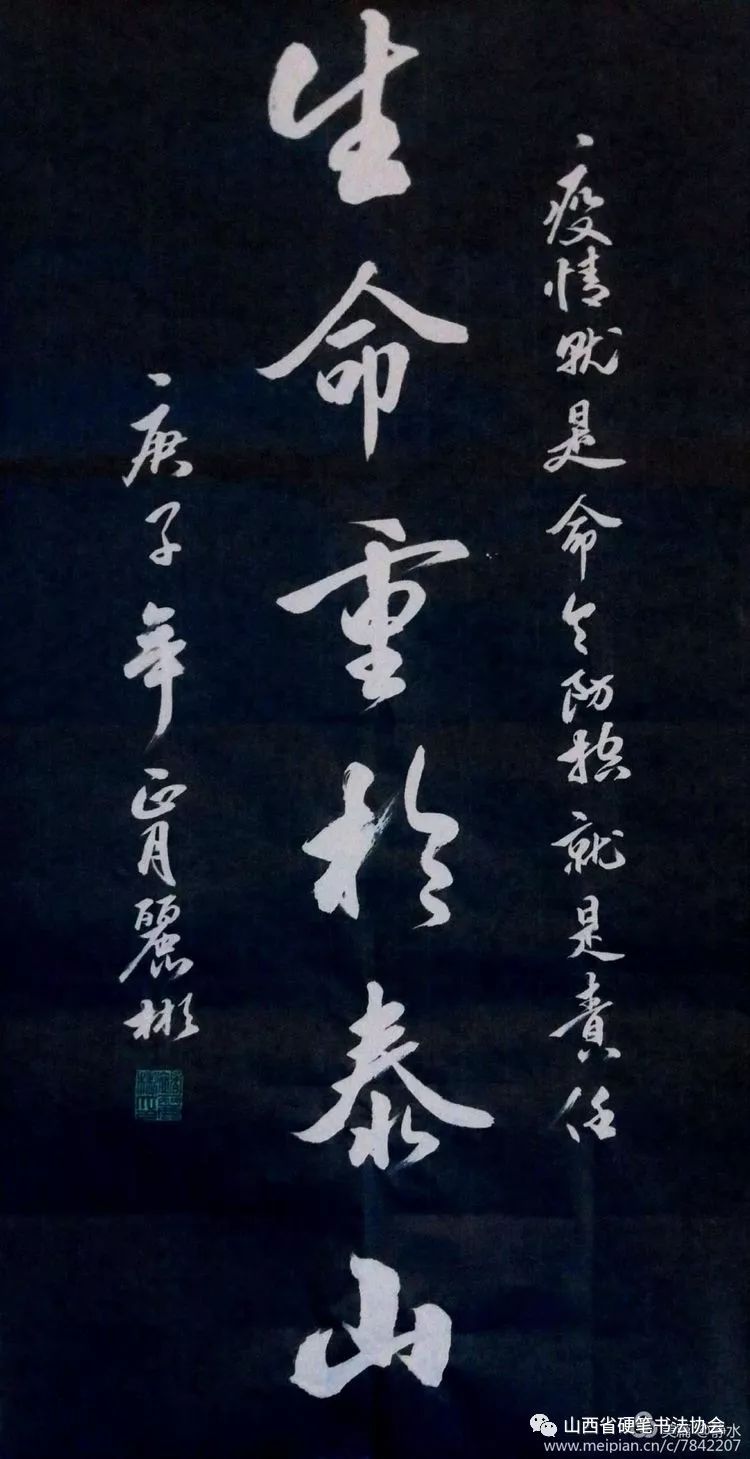 疫情就是命令防控就是责任
生命重於泰山
庚子年正月麗彬
山西省硬笔书法协会
www.meipian.cn/c/7842207